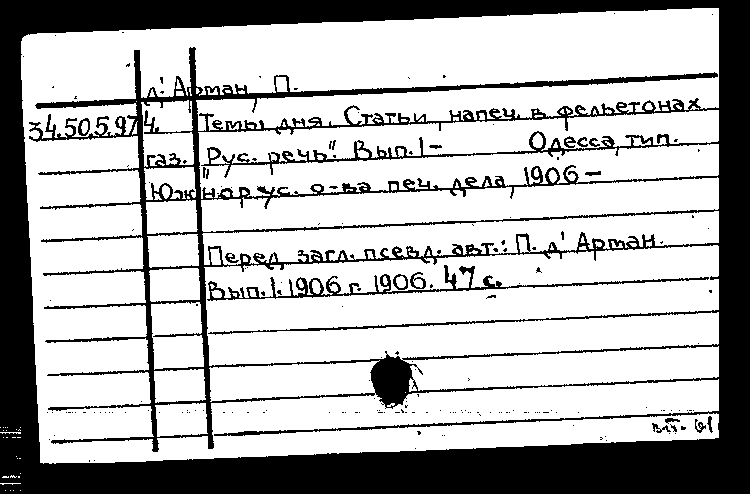 д' Арман, П.
34.50.5.974. Темы дня. Статьи, напеч. в фельетонах
газ. "Рус. речь". Вып. I- Одесса, тип.
Южнорус. о-ва печ. дела, 1906 -
Перед загл. псевд. авт.: П. д' Арман.
Вып. I. 1906 г. 1906. 47 с.